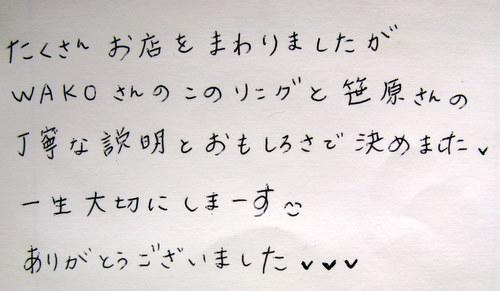 たくさん お店を まわりましたが
WAKOさんの このリングと 笹原さんの
丁寧な説明と おもしろさで 決めました♥
一生大切にしまーす
ありがとうございました♥♥♥